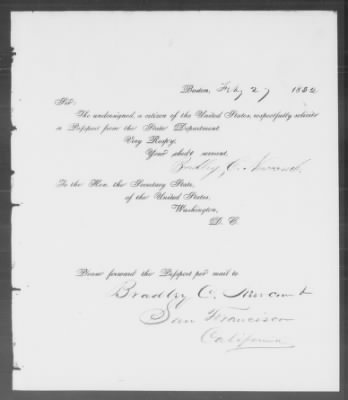 Boston, Feby 27 1852
Sir:
The undersigned, a citizen of the United States, respectfully solicits
a Passport from the State Department
Very Respy.
Your obdt servant,
Bradley C.
To the Hon. the Secretary State,
of the United States,
Washington,
D. C.
Please forward the Passport per mail to
Bradley C.
San Francisco
California